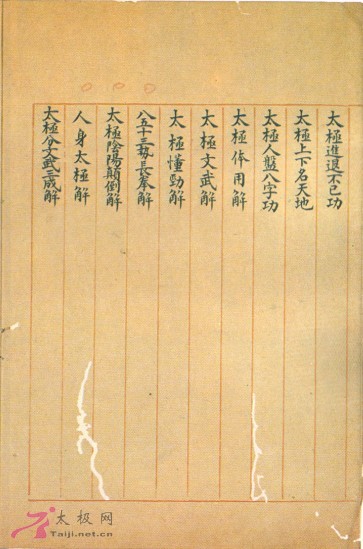 太極進退不已功
太極上下名天地
太極人盤八字功
太極体用解
太極文武解
太極懂勁解
八五十三势長拳解
太極陰陽顛倒解
人身太極解
太極分文武三成解
太极网
Taiji.net.cn